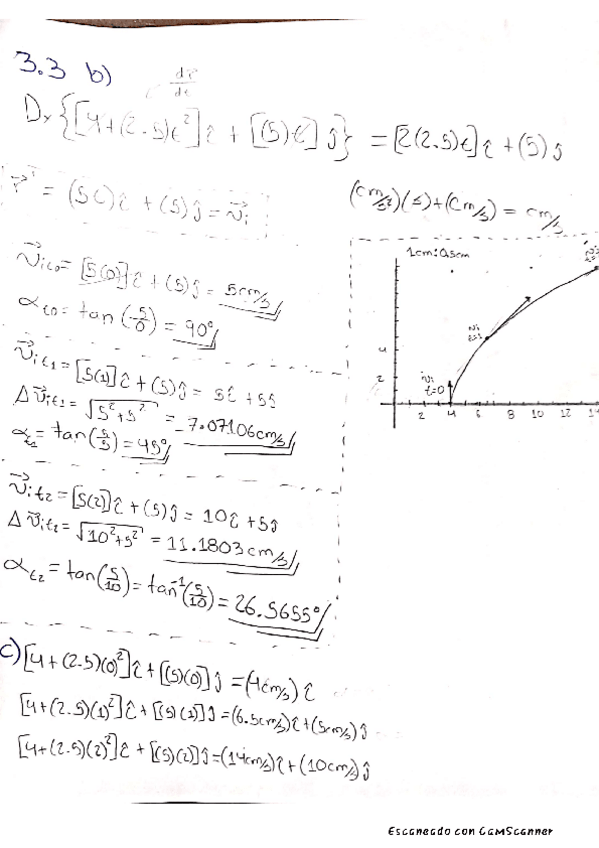 3.3 b)
dr/dt
Dx{[4+(2.5)t²]î + [(5)t]ĵ} = [2(2.5)t]î+(5)ĵ
r⃗' = (5t)î + (5)ĵ = v⃗i
(cm/s²)(s)+(cm/s) = cm/s
v⃗it0 = [5(0)]î+(5)ĵ = 5cm/s
αt0 = tan(5/0) = 90°
v⃗it1 = [5(1)]î+(5)ĵ = 5î+5ĵ
Δv⃗it1 = √5²+5² = 7.07106cm/s
αt1 = tan(5/5) = 45°
v⃗it2 = [5(2)]î+(5)ĵ = 10î+5ĵ
Δv⃗it2 = √10²+5² = 11.1803cm/s
αt2 = tan(5/10) = tan⁻¹(5/10) = 26.5655°
1cm:0.5cm
4
2
vi
t=0
2 4 6 8 10 12 14
c) [4+(2.5)(0)²]î+[(5)(0)]ĵ = (4cm/s)î
[4+(2.5)(1)²]î+[(5)(1)]ĵ = (6.5cm/s)î+(5cm/s)ĵ
[4+(2.5)(2)²]î+[(5)(2)]ĵ = (14cm/s)î+(10cm/s)ĵ
Escaneado con CamScanner